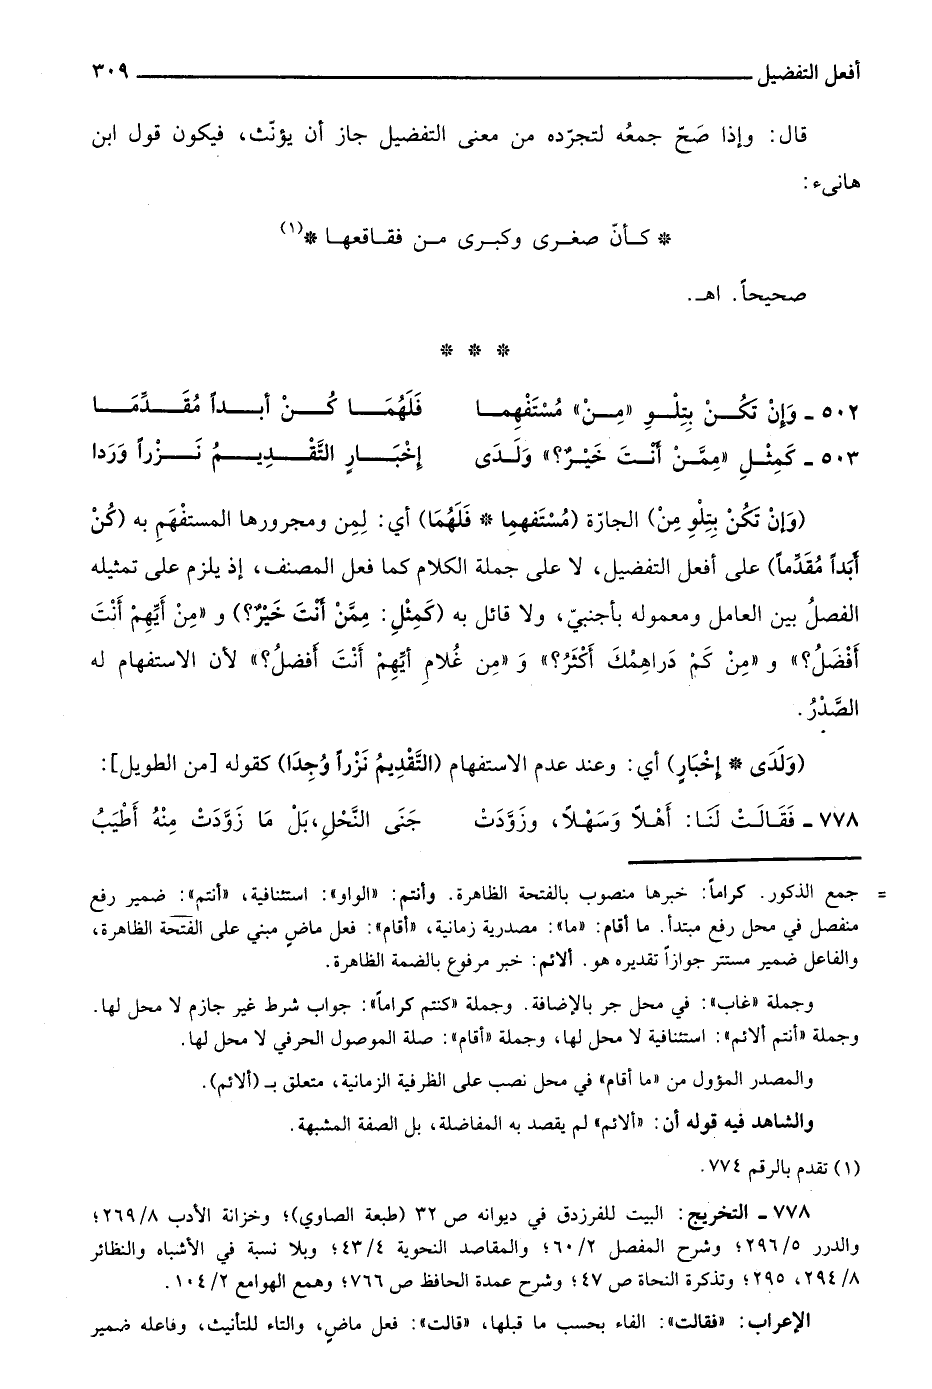 أفعل التفضيل ٣٠٩
قال: وإذا صَحّ جمعُه لتجرّده من معنى التفضيل جاز أن يؤنّث، فيكون قول ابن
هانىء:
* كـأنّ صغـرى وكبـرى مـن فقـاقعهـا *(١)
صحيحاً. اهـ.
* * *
٥٠٢ ـ وَإِنْ تَكُـنْ بِتِلْـوِ «مِـنْ» مُسْتَفْهِمـا فَلَهُمَـا كُـنْ أبـداً مُقَـدِّمَـا
٥٠٣ ـ كَمِثْـلِ «مِمَّـنْ أَنْـتَ خَيْـرٌ؟» وَلَـدَى إخْبَـارٍ التَّقْـدِيـمُ نَـزْراً وَرَدا
(وَإِنْ تَكُنْ بِتِلْوِ مِنْ) الجارّة (مُسْتَفهِما * فَلَهُمَا) أي: لِمِن ومجرورها المستفْهَمِ به (كُنْ
أَبَداً مُقَدِّماً) على أفعل التفضيل، لا على جملة الكلام كما فعل المصنف، إذ يلزم على تمثيله
الفصلُ بين العامل ومعموله بأجنبيّ، ولا قائل به (كَمِثْلِ: مِمَّنْ أَنْتَ خَيْرٌ؟) و «مِنْ أَيِّهِمْ أَنْتَ
أَفْضَلُ؟» و «مِنْ كَمْ دَراهِمُكَ أَكْثَرُ؟» وَ «مِن غُلامِ أيِّهِمْ أَنْتَ أَفضلُ؟» لأن الاستفهام له
الصَّدْرُ.
(وَلَدَى * إخْبَارٍ) أي: وعند عدم الاستفهام (التَّقْدِيمُ نَزْراً وُجِدَا) كقوله [من الطويل]:
٧٧٨ ـ فَقَـالَـتْ لَنَـا: أَهْـلاً وَسَهْـلاً، وزَوَّدَتْ جَنَى النَّحْلِ، بَلْ مَا زَوَّدَتْ مِنْهُ أَطْيَبُ
= جمع الذكور. كراماً: خبرها منصوب بالفتحة الظاهرة. وأنتم: «الواو»: استئنافية، «أنتم»: ضمير رفع
منفصل في محل رفع مبتدأ. ما أقام: «ما»: مصدرية زمانية، «أقام»: فعل ماضٍ مبني على الفتحة الظاهرة،
والفاعل ضمير مستتر جوازاً تقديره هو. ألائم: خبر مرفوع بالضمة الظاهرة.
وجملة «غاب»: في محل جر بالإضافة. وجملة «كنتم كراماً»: جواب شرط غير جازم لا محل لها.
وجملة «أنتم ألائم»: استئنافية لا محل لها، وجملة «أقام»: صلة الموصول الحرفي لا محل لها.
والمصدر المؤول من «ما أقام» في محل نصب على الظرفية الزمانية، متعلق بـ (ألائم).
والشاهد فيه قوله أن: «ألائم» لم يقصد به المفاضلة، بل الصفة المشبهة.
(١) تقدم بالرقم ٧٧٤.
٧٧٨ ـ التخريج: البيت للفرزدق في ديوانه ص ٣٢ (طبعة الصاوي)؛ وخزانة الأدب ٨/ ٢٦٩؛
والدرر ٥/ ٢٩٦؛ وشرح المفصل ٢/ ٦٠؛ والمقاصد النحوية ٤/ ٤٣؛ وبلا نسبة في الأشباه والنظائر
٨/ ٢٩٤، ٢٩٥؛ وتذكرة النحاة ص ٤٧؛ وشرح عمدة الحافظ ص ٧٦٦؛ وهمع الهوامع ٢/ ١٠٤.
الإعراب: «فقالت»: الفاء بحسب ما قبلها، «قالت»: فعل ماضٍ، والتاء للتأنيث، وفاعله ضمير